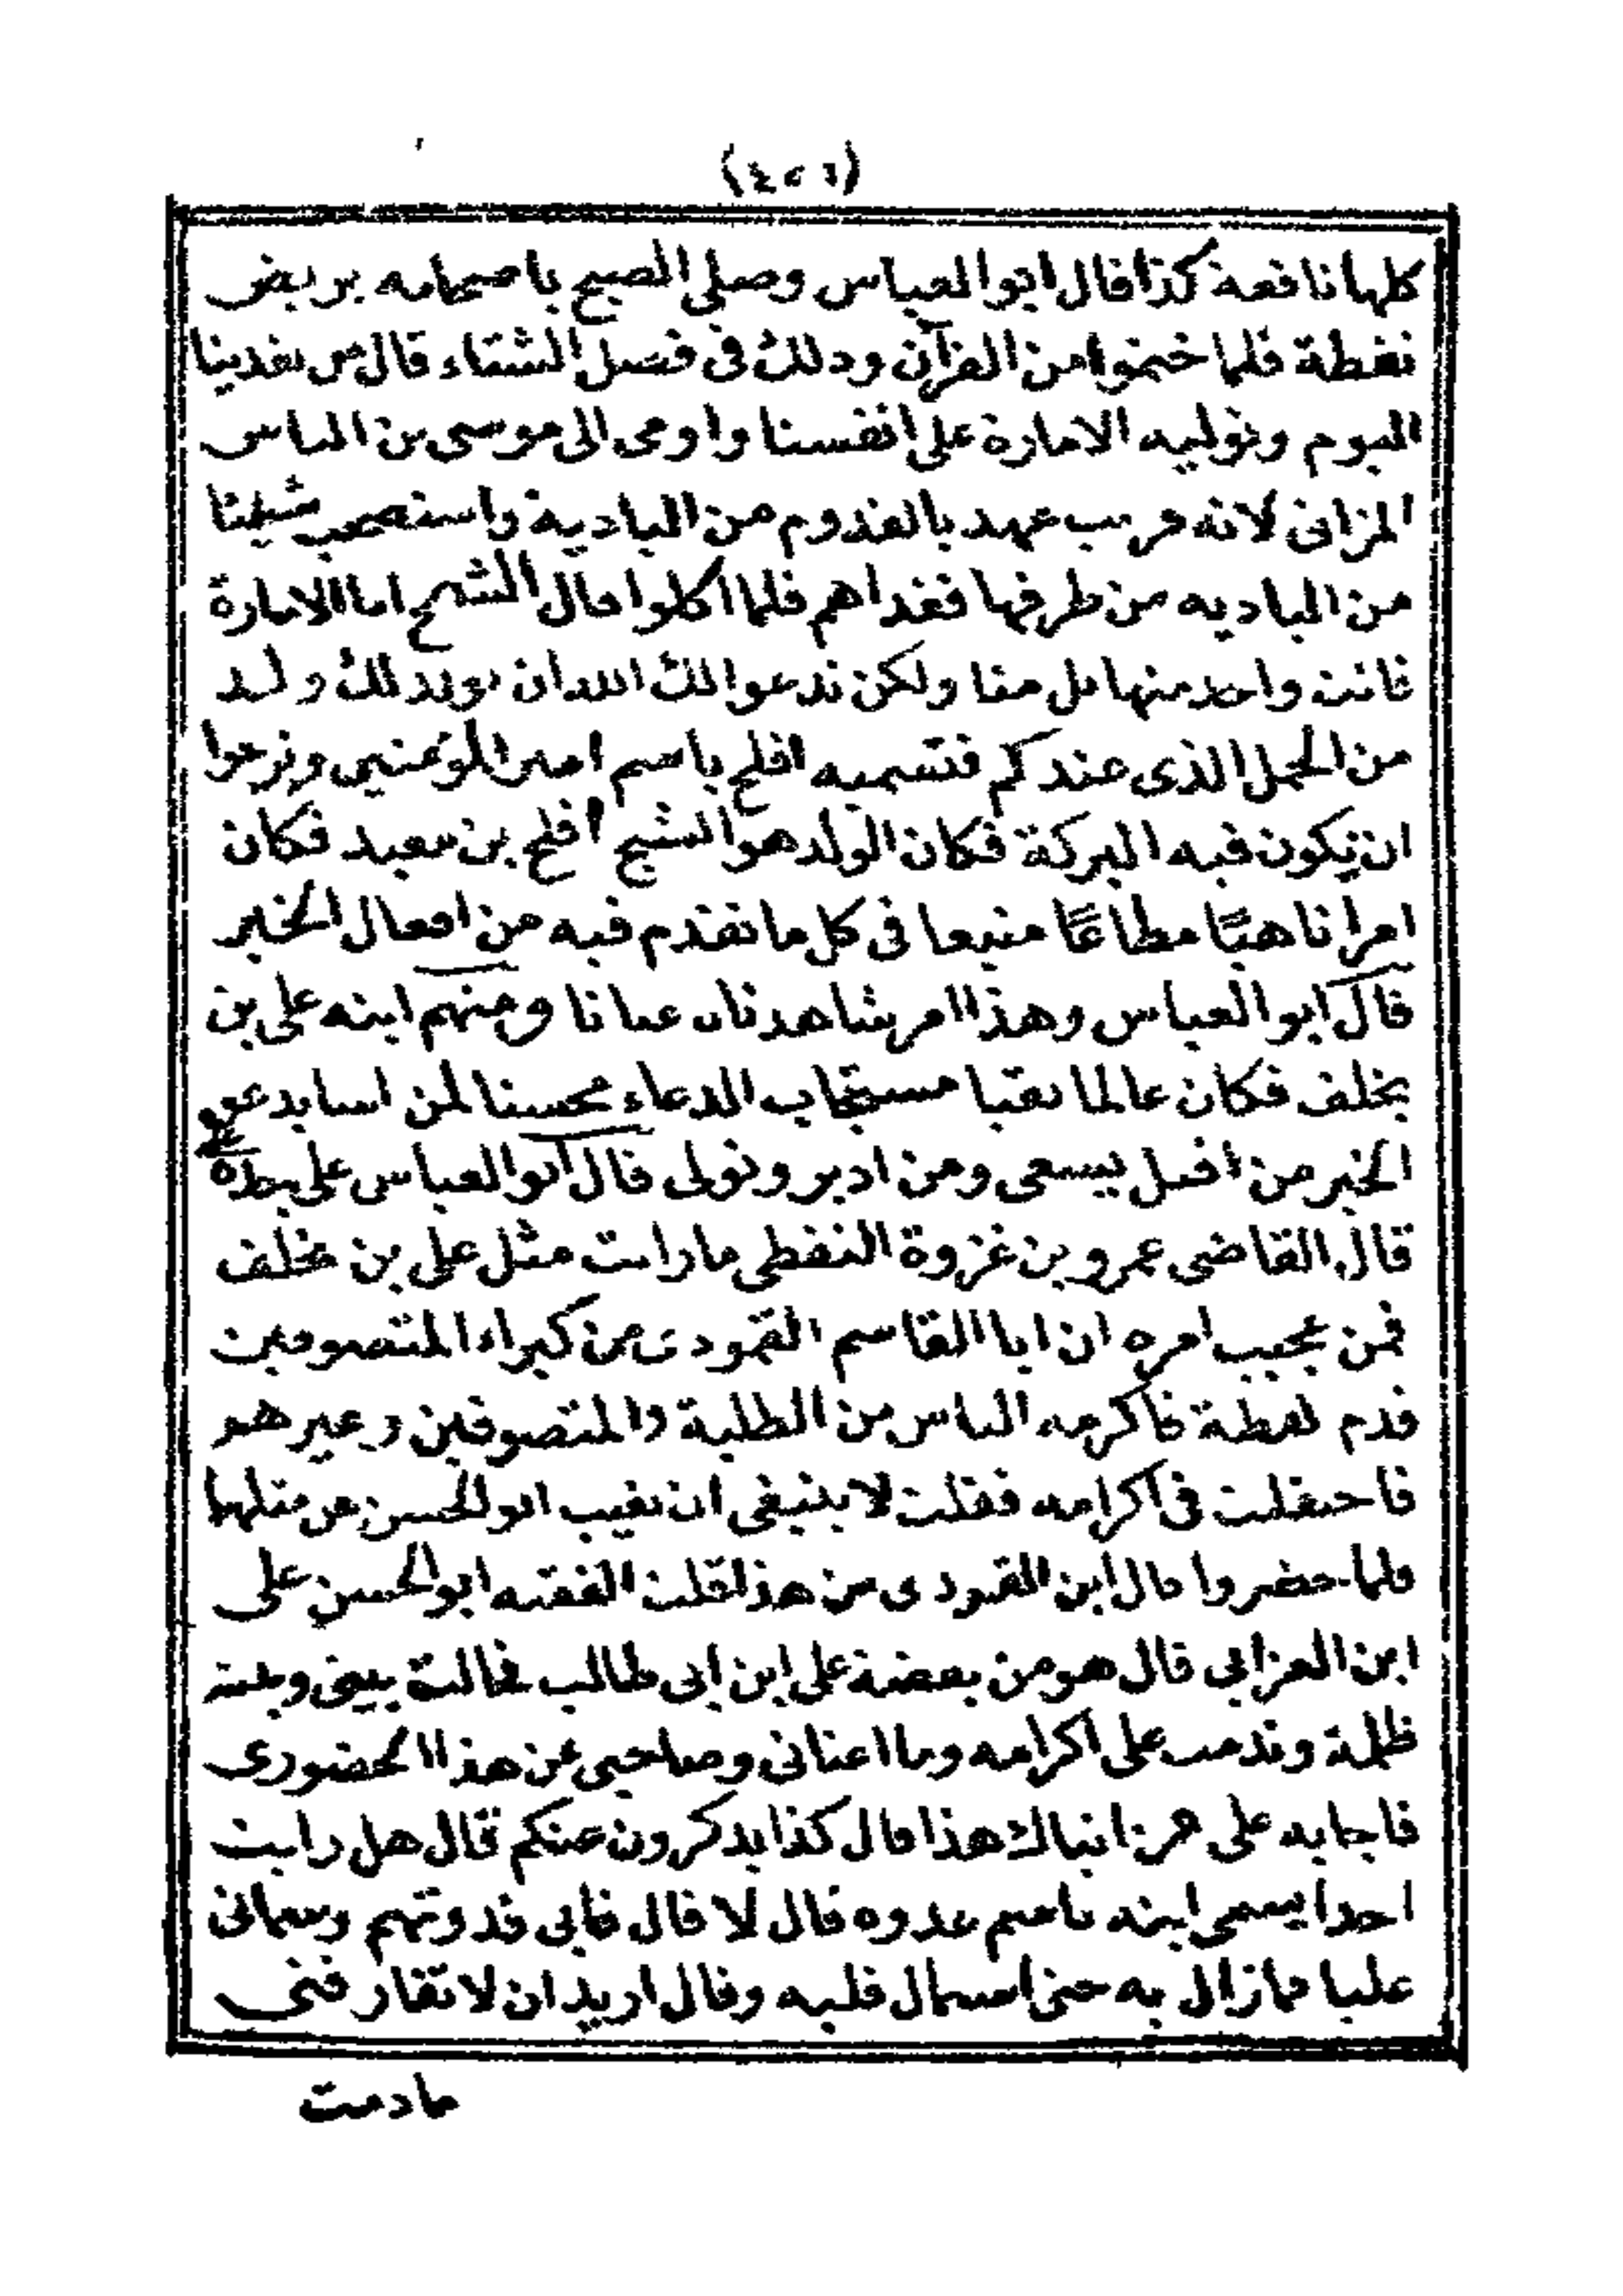 (٤٥٦)
كلها نافعة كذا قال ابو العباس وصلى الصبح باصحابه بربض
نفطة فلما ختموا من القرآن وذلك فى فصل الشتاء قال من يغدينا
اليوم ونوليه الامارة على انفسنا واومى الى موسى بن الياس
المزاتى لانه قريب عهد بالقدوم من البادية واستصحب شيئا
من البادية من طرفها فغداهم فلما اكلوا قال الشيخ اما الامارة
فانت واحد منها بل منا ولكن ندعوا لك الله ان يولد لك ولد
من الحمل الذى عندكم فتسميه افلح باسم امير المؤمنين ونرجوا
ان تكون فيه البركة فكان الولد هو الشيخ افلح بن معبد فكان
امرا ناهيًا مطاعًا متبعا فى كل ما تقدم فيه من افعال الخير
قال ابو العباس وهذا امر شاهدناه عيانا ومنهم ابنه على بن
يخلف فكان عالما تقيا مستجاب الدعاء محسنا لمن اسا يدعو
الخير من اقبل يسعى ومن ادبر وتولى قال ابو العباس على جده
قال القاضى عمرو بن غزوة النفطى ما رايت مثل على بن يخلف
فمن عجيب امره ان ابا القاسم القمودى من كبراء المتصوفين
قدم نفطة فاكرمه الناس من الطلبة والمتصوفين وغيرهم
فاحتفلت فى اكرامه فقلت لا ينبغى ان يغيب ابو الحسن عن مثلها
ولما حضروا قال ابن القمودى من هذا قلت الفقيه ابو الحسن على
ابن العزابى قال هو من بغضة على ابن ابى طالب فحالت بينى وبينه
ظلمة وندمت على اكرامه وما اغنانى وصاحبى عن هذا الحضورى
فاجابه على من انباك هذا قال كذا يذكرون عنكم قال هل رايت
احدا يسمى ابنه باسم عدوه قال لا قال فابى قدوتهم وسمانى
عليا فما زال به حتى استمال قلبه وقال اريد ان لا تفارقنى
مادمت